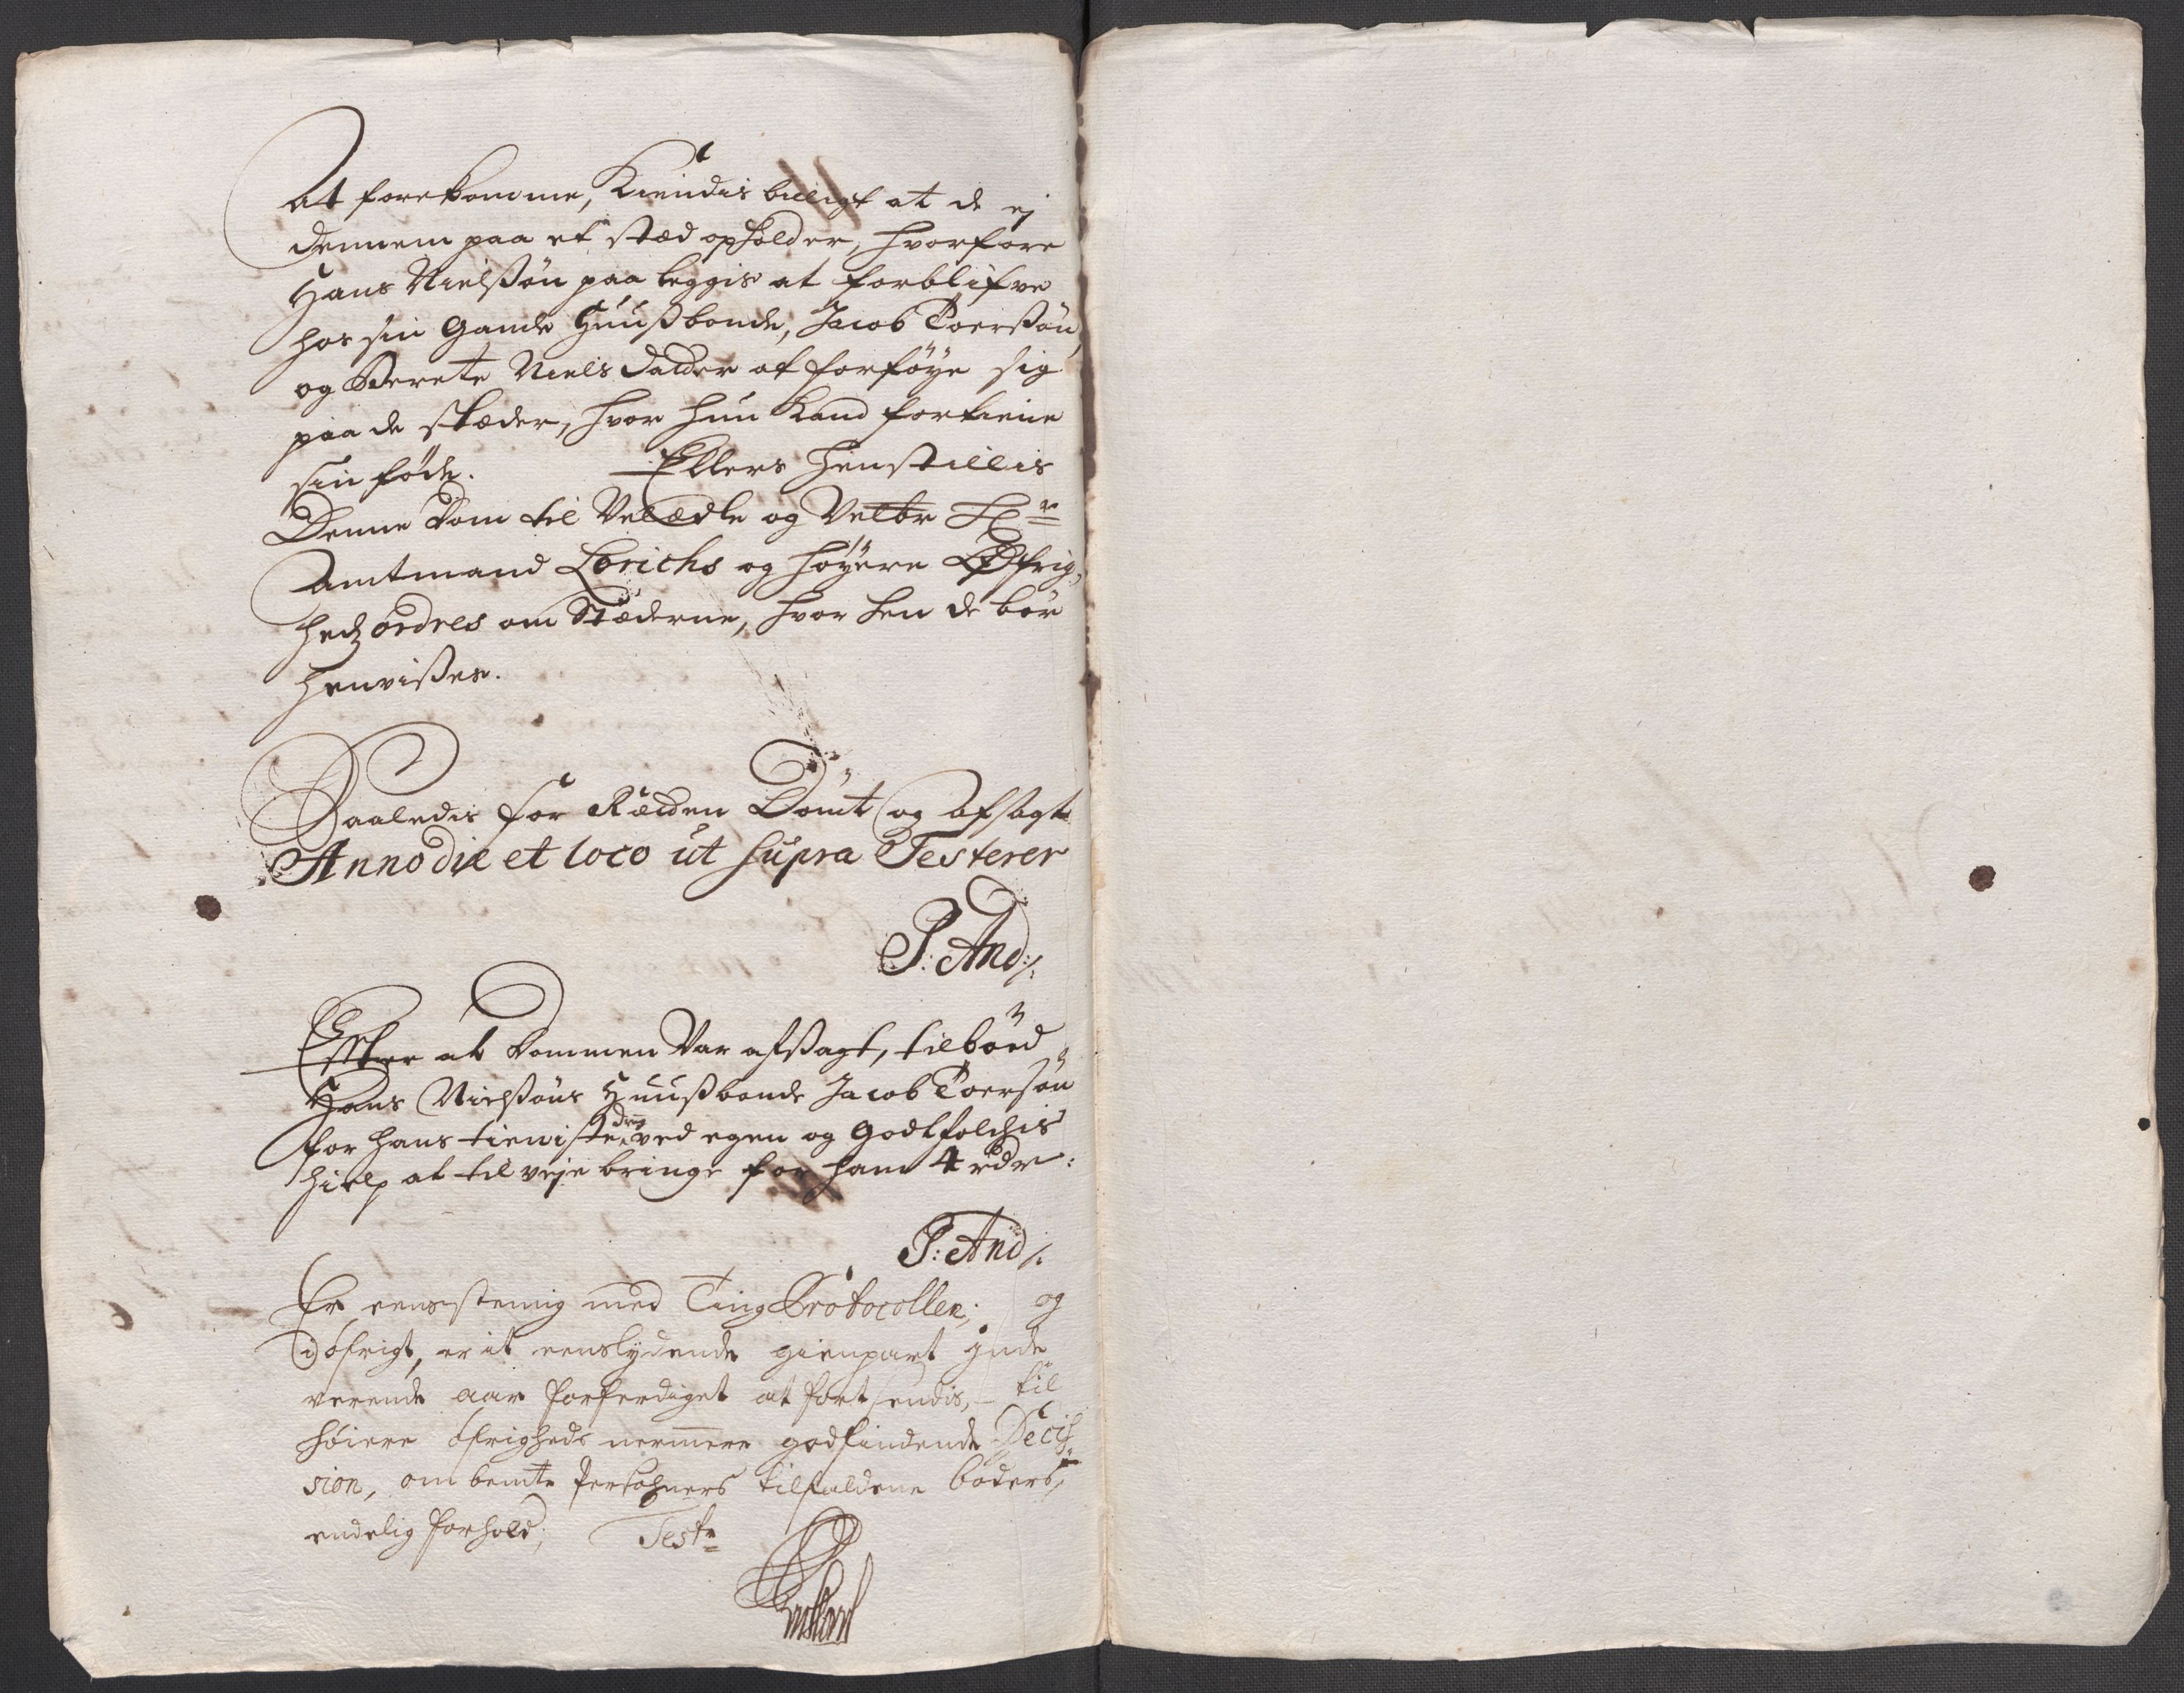 At forekomme, Kiendis billigt at de ej
dennem paa et stæd opholder, hvorfore
Hans Nielsøn paa leggis at forblifve
hos sin Gamle Huusbonde, Jacob Toersøn,
og Berete Niels daatter at forføye sig
paa de stæder, hvor hun Kand fortiene
sin føde. Ellers henstillis
Denne dom til Velædle og Velbr Hr
Amtmand Lorichs og høyere Øfrig,
hedz ordres om Stæderne, hvor hen de bør
henvisses.
Saaledis for Rætten Dömt og afsagt
Anno die et loco ut supra Testerer
P: And:/:
Efter at dommen Var afsagt, tilböd
Hans Nielsøns Huusbonde Jacob Toersøn
for hans tieniste dreng ved egen og Godtfolchis
hielp at til veje bringe for ham 4 rdr:
P: And/:
Er eensstemig med Ting Protocollen; og
i öfrigt, er it eenslydende gienpart jnde
verende aar forferdiget at fortsendis, til
høiere öfrigheds nermere godfindende Decis
sion, om bemte Persohners tilfaldene böders,
endelig forhold; Teste